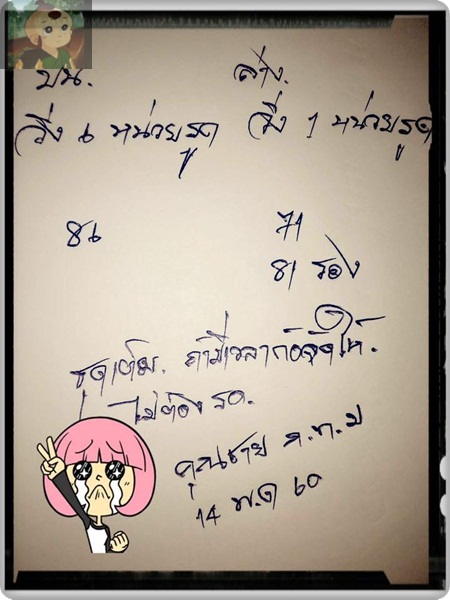 บน. ล่าง.
วิ่ง 6 หน่วยรูด วิ่ง 1 หน่วยรูด
86 71
81 รอง
ชุดเต็ม. ถ้ามีเวลาก้อจัดให้.
ไม่ต้อง รอ.
คุณชาย ก.ท.ม
14 พ.ค 60